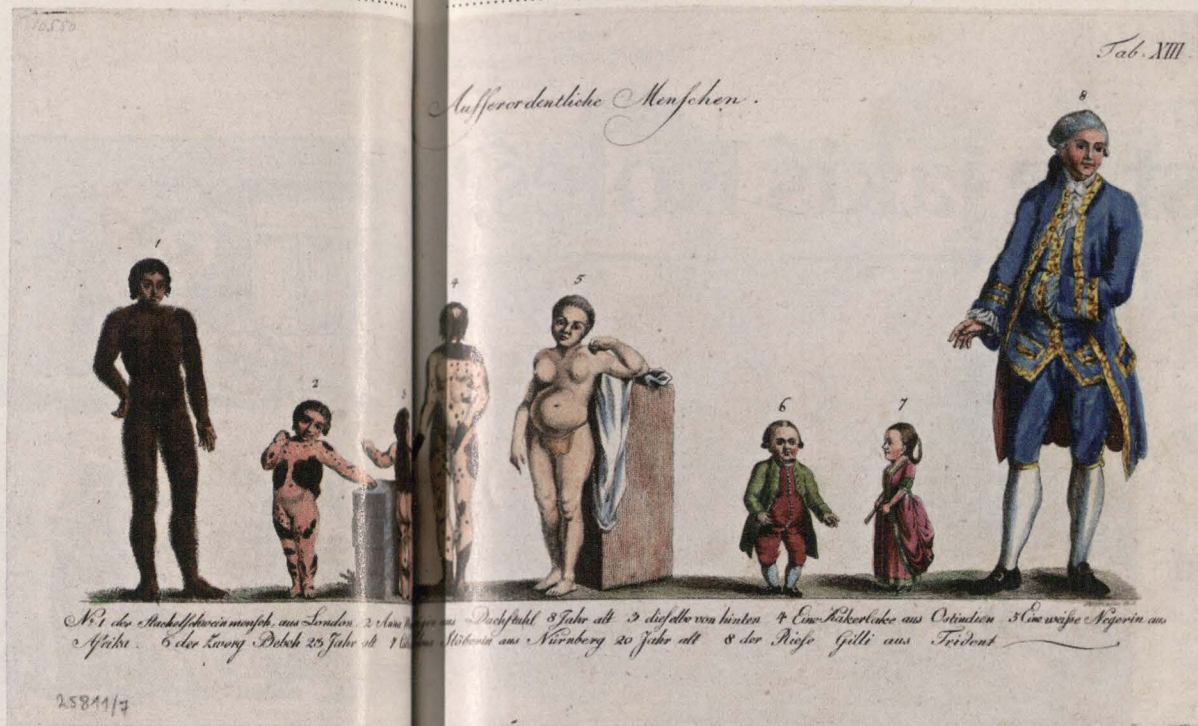 10550
Tab. XIII
Aufserordentliche Menschen.
8
1
4
5
2
3
6
7
No 1 der Stachelschweinmensch, aus London. 2 Anna aus Dachstuhl 8 Jahr alt 3 dieselbe von hinten 4 Eine Kakerlake aus Ostindien 5 Eine weiße Negerin aus
Afrika. 6 der Zwerg Bebeh 23 Jahr alt 7 Stöberin aus Nürnberg 20 Jahr alt 8 der Riese Gilli aus Trident
25811/7